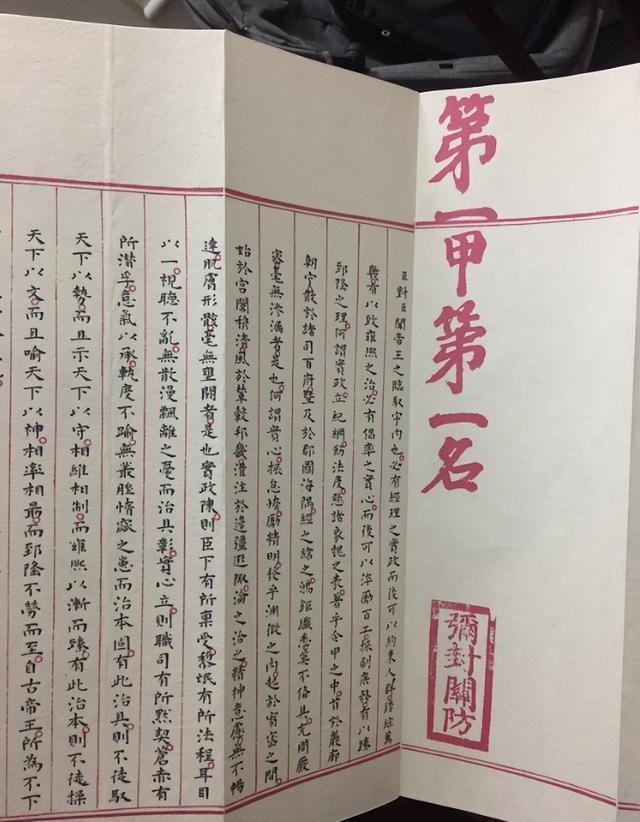 第一甲第一名
彌封關防
臣對臣聞帝王之臨馭宇內也必有經理之實政而後可以約束人群錯綜萬
幾有以致雍熙之治必有倡率之實心而後可以淬勵百工振刷庶務有以臻
郅隆之理何謂實政立紀綱飭法度懸諸象魏之表著乎令甲之中首於巖廊
朝宁散於諸司百府暨及於郡國海隅經之緯之鴻鉅纖悉莫不備具充周嚴
密毫無滲漏者是也何謂實心振怠惰勵精明發乎淵微之內起於宥密之間
始於宮闈穆清風於輦轂邦畿灌注於邊疆遐陬淪之洽之精神意慮無不暢
達肌膚形骸毫無壅閼者是也實政陳則臣下有所稟受黎氓有所法程耳目
以一視聽不亂無散漫飄離之憂而治具彰實心立則職司有所默契蒼赤有
所潛孚意氣以承軌度不踰無叢脞惰窳之患而治本固有此治具則不徒馭
天下以勢而且示天下以守相維相制而雍熙以漸而臻有此治本則不徒操
天下以文而且喻天下以神相率相勗而郅隆不勞而至自古帝王所為不下